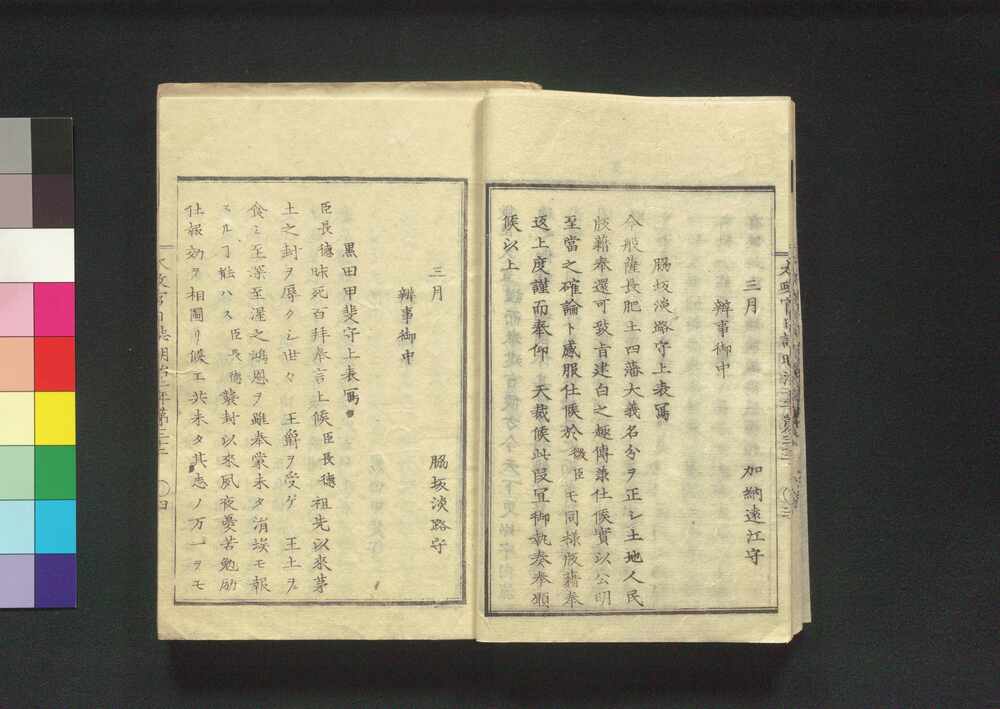 三月
加納遠江守
辨事御中
脇坂淡路守上表寫
今般薩長肥土四藩大義名分ヲ正シ土地人民
版藉奉還可致旨建白之趣傳承仕候實以公明
至當之確論ト感服仕候於微臣モ同様版藉奉
返上度謹而奉仰　天裁候此段宜御執奏奉願
候以上
三月
脇坂淡路守
辨事御中
黒田甲斐守上表寫
臣長德昧死百拜奉言上候臣長德祖先以來茅
土之封ヲ辱クシ世々　王爵ヲ受ケ　王土ヲ
食ミ至深至渥之鴻恩ヲ雖奉蒙未タ涓埃モ報
スルヿ能ハス臣長德襲封以來夙夜憂苦勉励
仕報効ヲ相圖リ候エ共未タ其志ノ万一ヲモ
太政官日誌明治二年第三十二
〇四